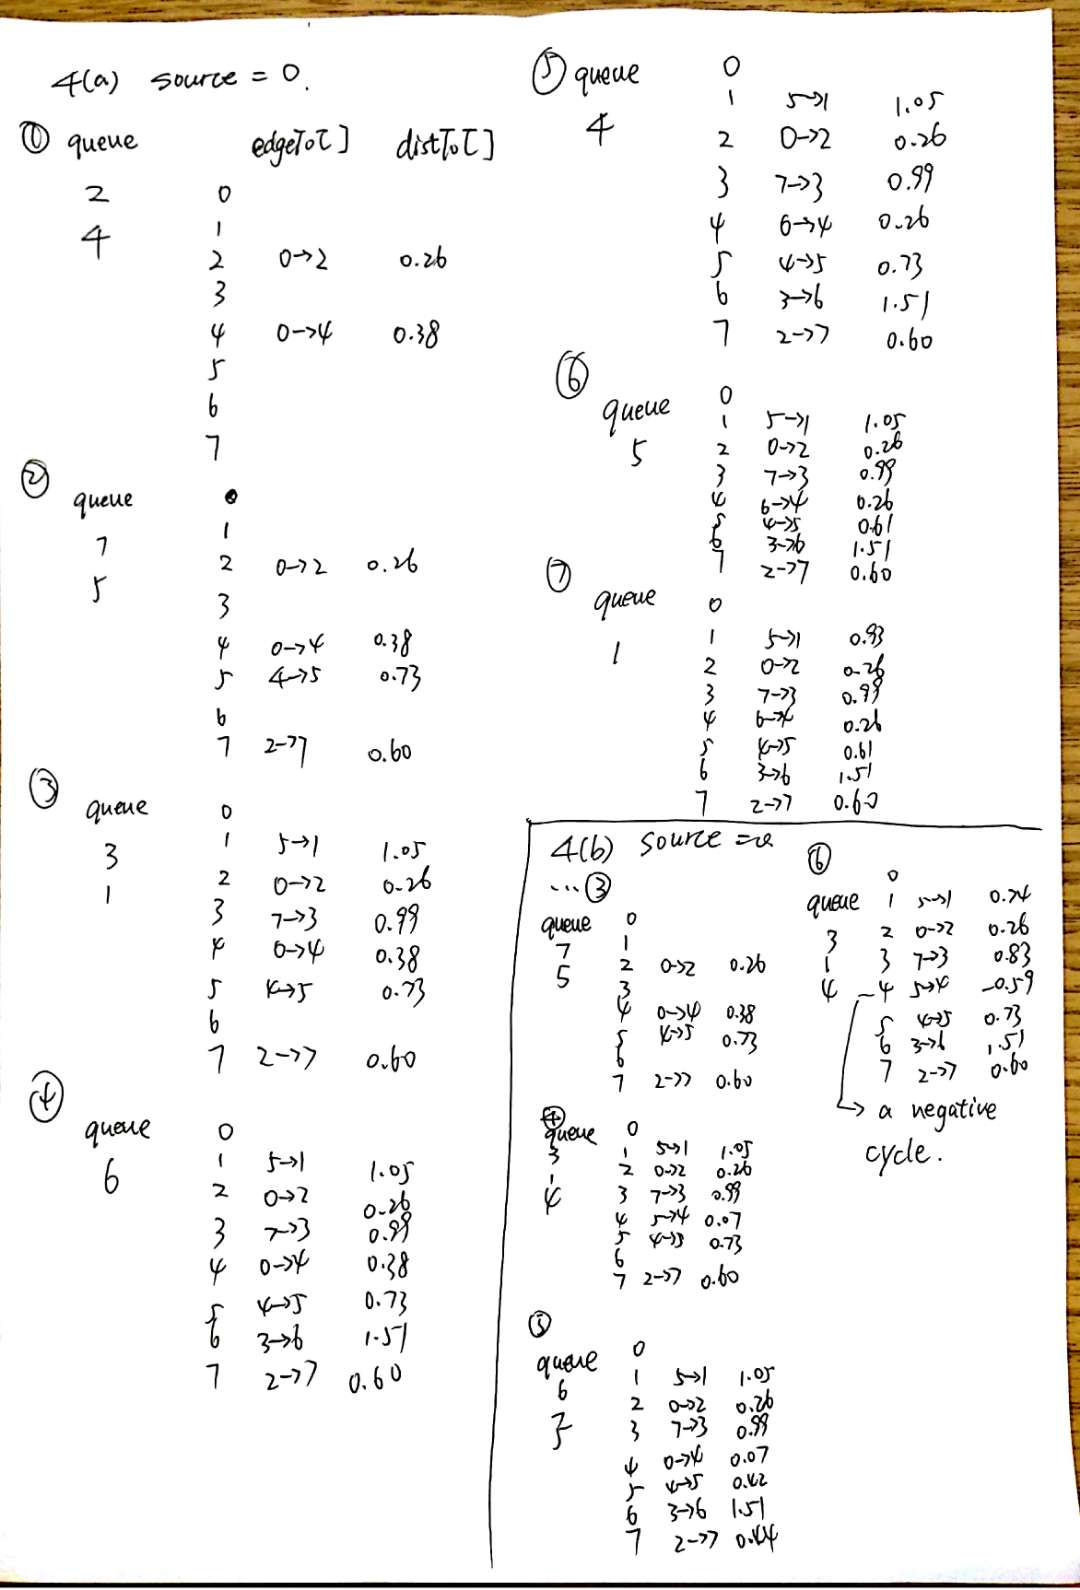 4(a) source = 0.
① queue edgeTo[] distTo[]
2 0
4 1
2 0→2 0.26
3
4 0→4 0.38
5
6
7
② queue 0
7 1
5 2 0→2 0.26
3
4 0→4 0.38
5 4→5 0.73
6
7 2→7 0.60
③ queue 0
3 1 5→1 1.05
1 2 0→2 0.26
3 7→3 0.99
4 0→4 0.38
5 4→5 0.73
6
7 2→7 0.60
④ queue 0
6 1 5→1 1.05
2 0→2 0.26
3 7→3 0.99
4 0→4 0.38
5 4→5 0.73
6 3→6 1.51
7 2→7 0.60
⑤ queue 0
4 1 5→1 1.05
2 0→2 0.26
3 7→3 0.99
4 6→4 0.26
5 4→5 0.73
6 3→6 1.51
7 2→7 0.60
⑥
queue 0
5 1 5→1 1.05
2 0→2 0.26
3 7→3 0.99
4 6→4 0.26
5 4→5 0.61
6 3→6 1.51
7 2→7 0.60
⑦ queue 0
1 1 5→1 0.93
2 0→2 0.26
3 7→3 0.99
4 6→4 0.26
5 4→5 0.61
6 3→6 1.51
7 2→7 0.60
4(b) source =
... ③
queue 0
7 1
5 2 0→2 0.26
3
4 0→4 0.38
5 4→5 0.73
6
7 2→7 0.60
④
queue 0
3 1 5→1 1.05
1 2 0→2 0.26
4 3 7→3 0.99
4 5→4 0.07
5 4→5 0.73
6
7 2→7 0.60
⑤
queue 0
6 1 5→1 1.05
2 0→2 0.26
3 7→3 0.99
4 0→4 0.07
5 4→5 0.42
6 3→6 1.51
7 2→7 0.44
⑥
queue 0
3 1 5→1 0.74
1 2 0→2 0.26
4 3 7→3 0.83
4 5→4 -0.59
5 4→5 0.73
6 3→6 1.51
7 2→7 0.60
→ a negative
cycle.